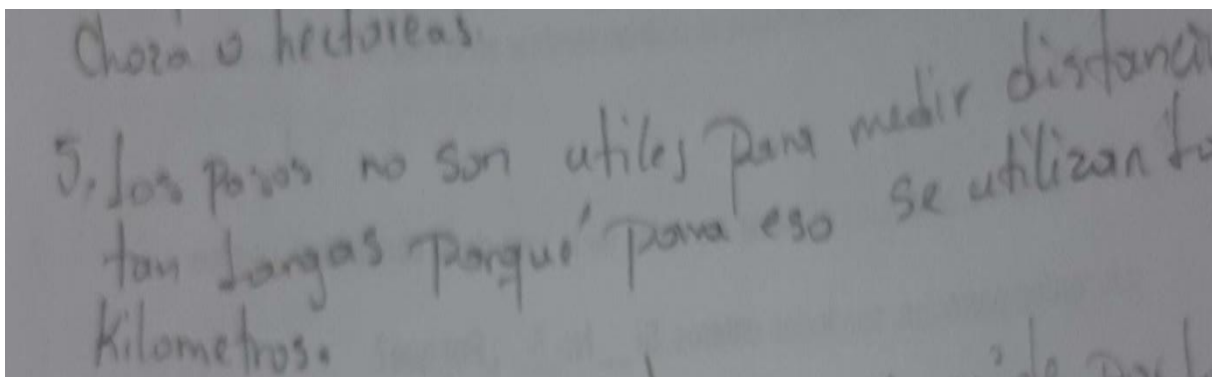 Chora o hectareas.
5. Los pasos no son utiles para medir distanci
tan Largas porqué para eso se utilizan lo
Kilometros.